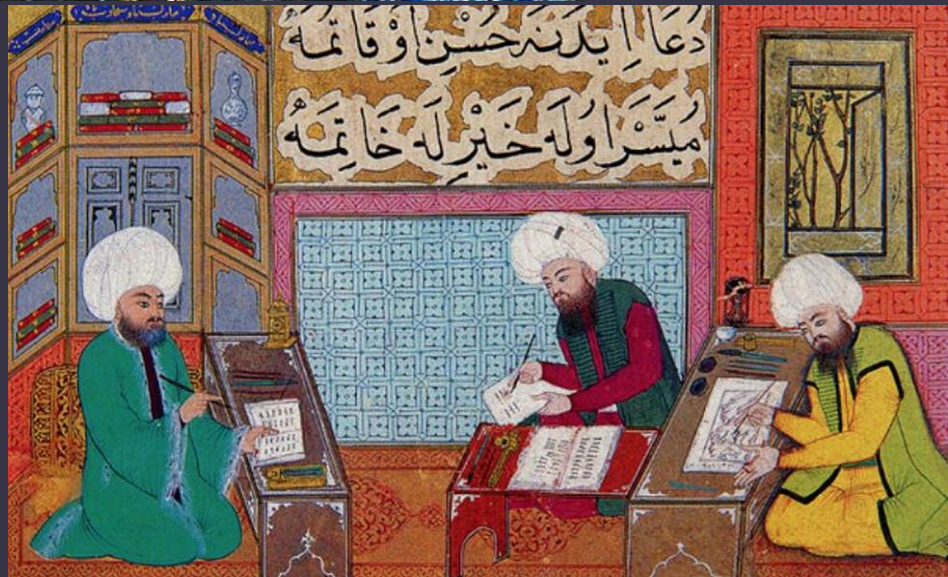 دُعَا اِيدَنَه حُسْنِ اَوْقَاتَمَهْ
مُيَسَّرْ اوُلَه خَيْرِ لَه خَاتِمَهْ